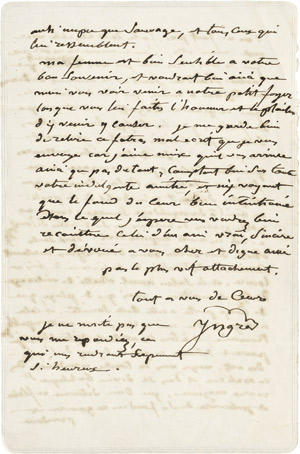 autre que Sauvage, et tous ceux qui
lui ressemblent.
ma femme est bien sensible a votre
bon souvenir, et voudrait bien ainsi que
moi vous voir venir a notre petit foyer
lorsque vous lui faites l'honneur et le plaisir
d'y venir y causer. je me garde bien
de relire ce fatras mal ecrit que je vous
envoye car j'aime mieux qu'il vous arrive
ainsi que pas du tout, comptant bien sur toute
votre indulgente amitié, et n'y voyant
que le fond du Coeur bien intentionné
dans lequel, j'espere vous voudrez bien
reconnitre Celui d'un ami vrai, Sincere
et dévoué a vous cher et digne ami
par le plus vif attachement.
tout a vous de Coeur
Ingres
je ne merite pas que
vous me repondiez, ce
qui me rendrait cependant
Si heureux.